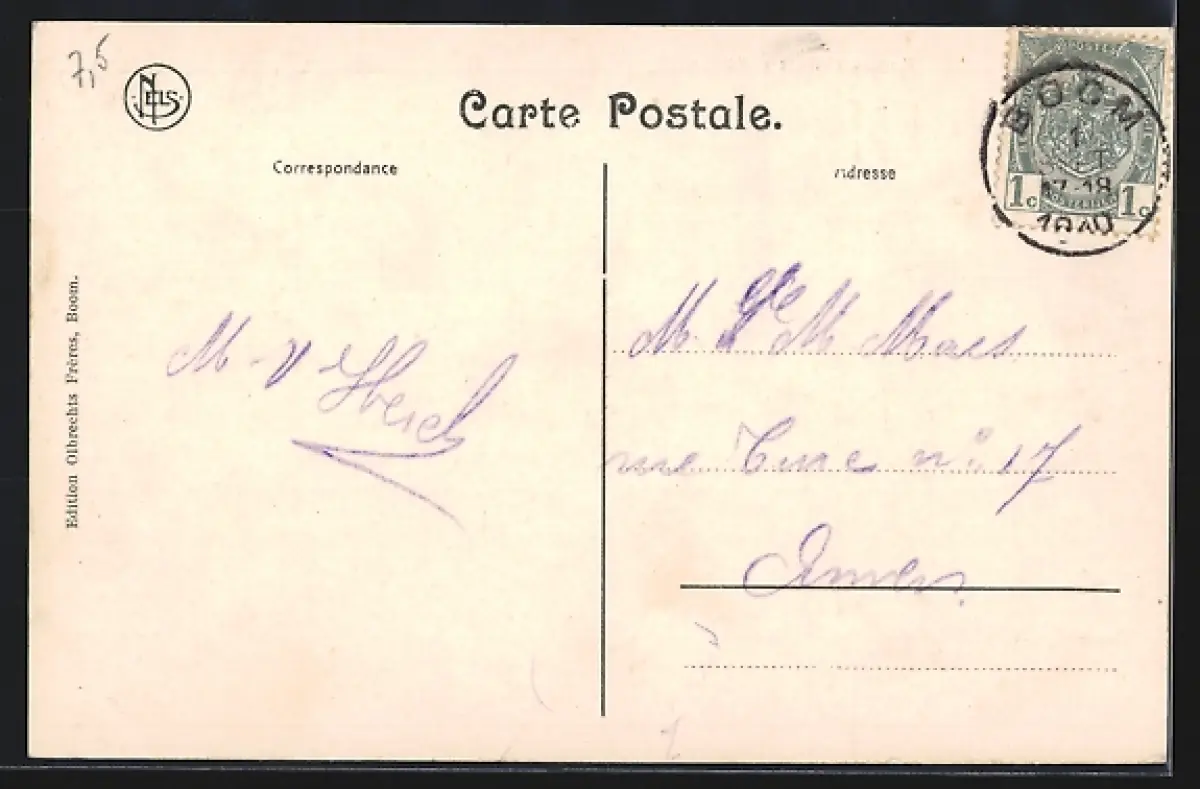 7,5
NELS
Carte Postale.
Correspondance
Adresse
BOOM
1
17-18
POSTES
1c 1c
Edition Olbrechts Frères, Boom.
M. V
M. M Maes
rue n° 17
Anvers.